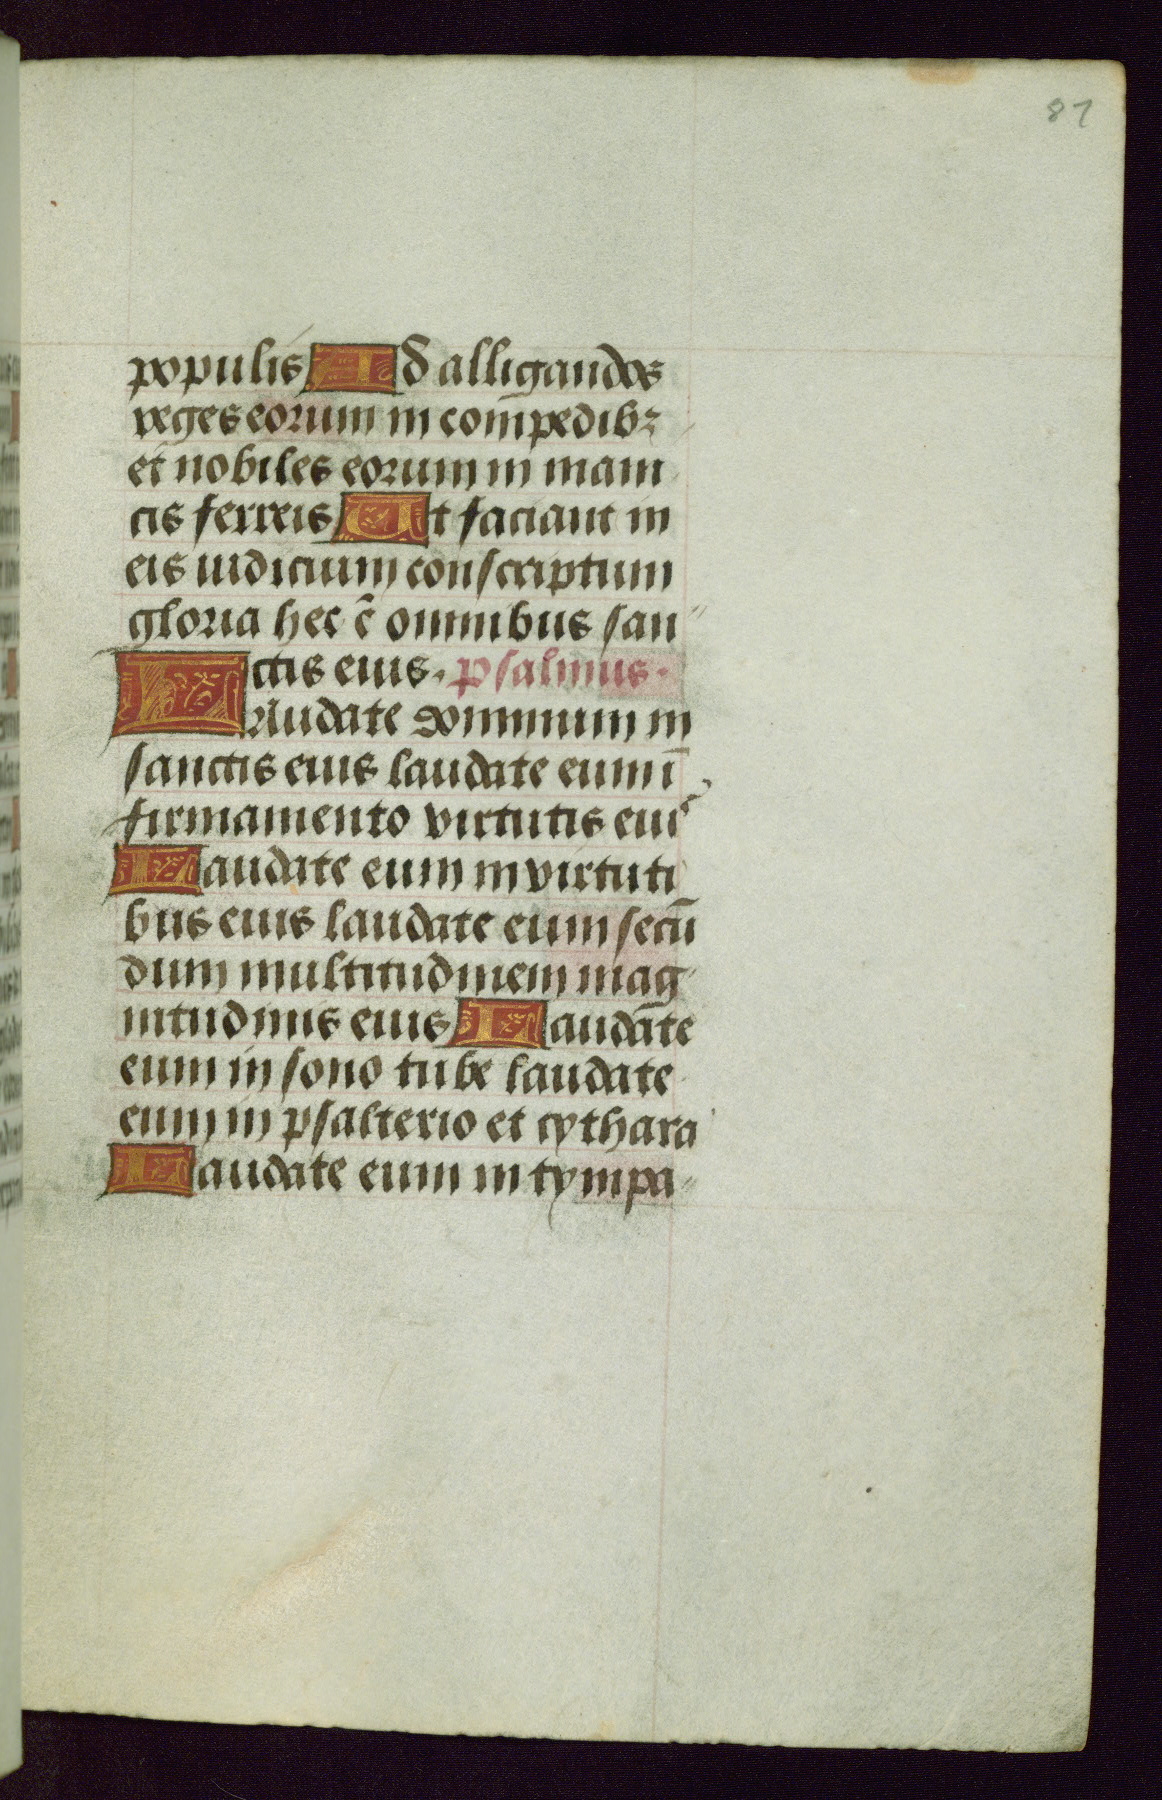 87
populis Ad alligandos
reges eorum in com̄pedibꝫ
et nobiles eorum in mani
cis ferreis Ut faciant in
eis iudicium conscriptum
gloria hec ē omnibus san
ctis eius. psalmus.
Laudate dominum in
sanctis eius laudate eum ī
firmamento virtutis eius
Laudate eum in virtuti
bus eius laudate eum secū
dum multitudinem mag
nitudinis eius Laudate
eum in sono tube laudate
eum in psalterio et cythara
Laudate eum in tympa